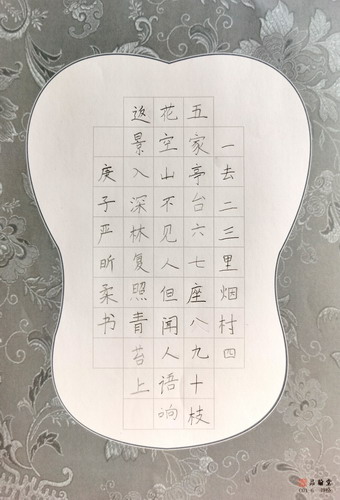 一去二三里烟村四
五家亭台六七座八九十枝
花空山不见人但闻人语响
返景入深林复照青苔上
庚子严昕柔书
品翰堂